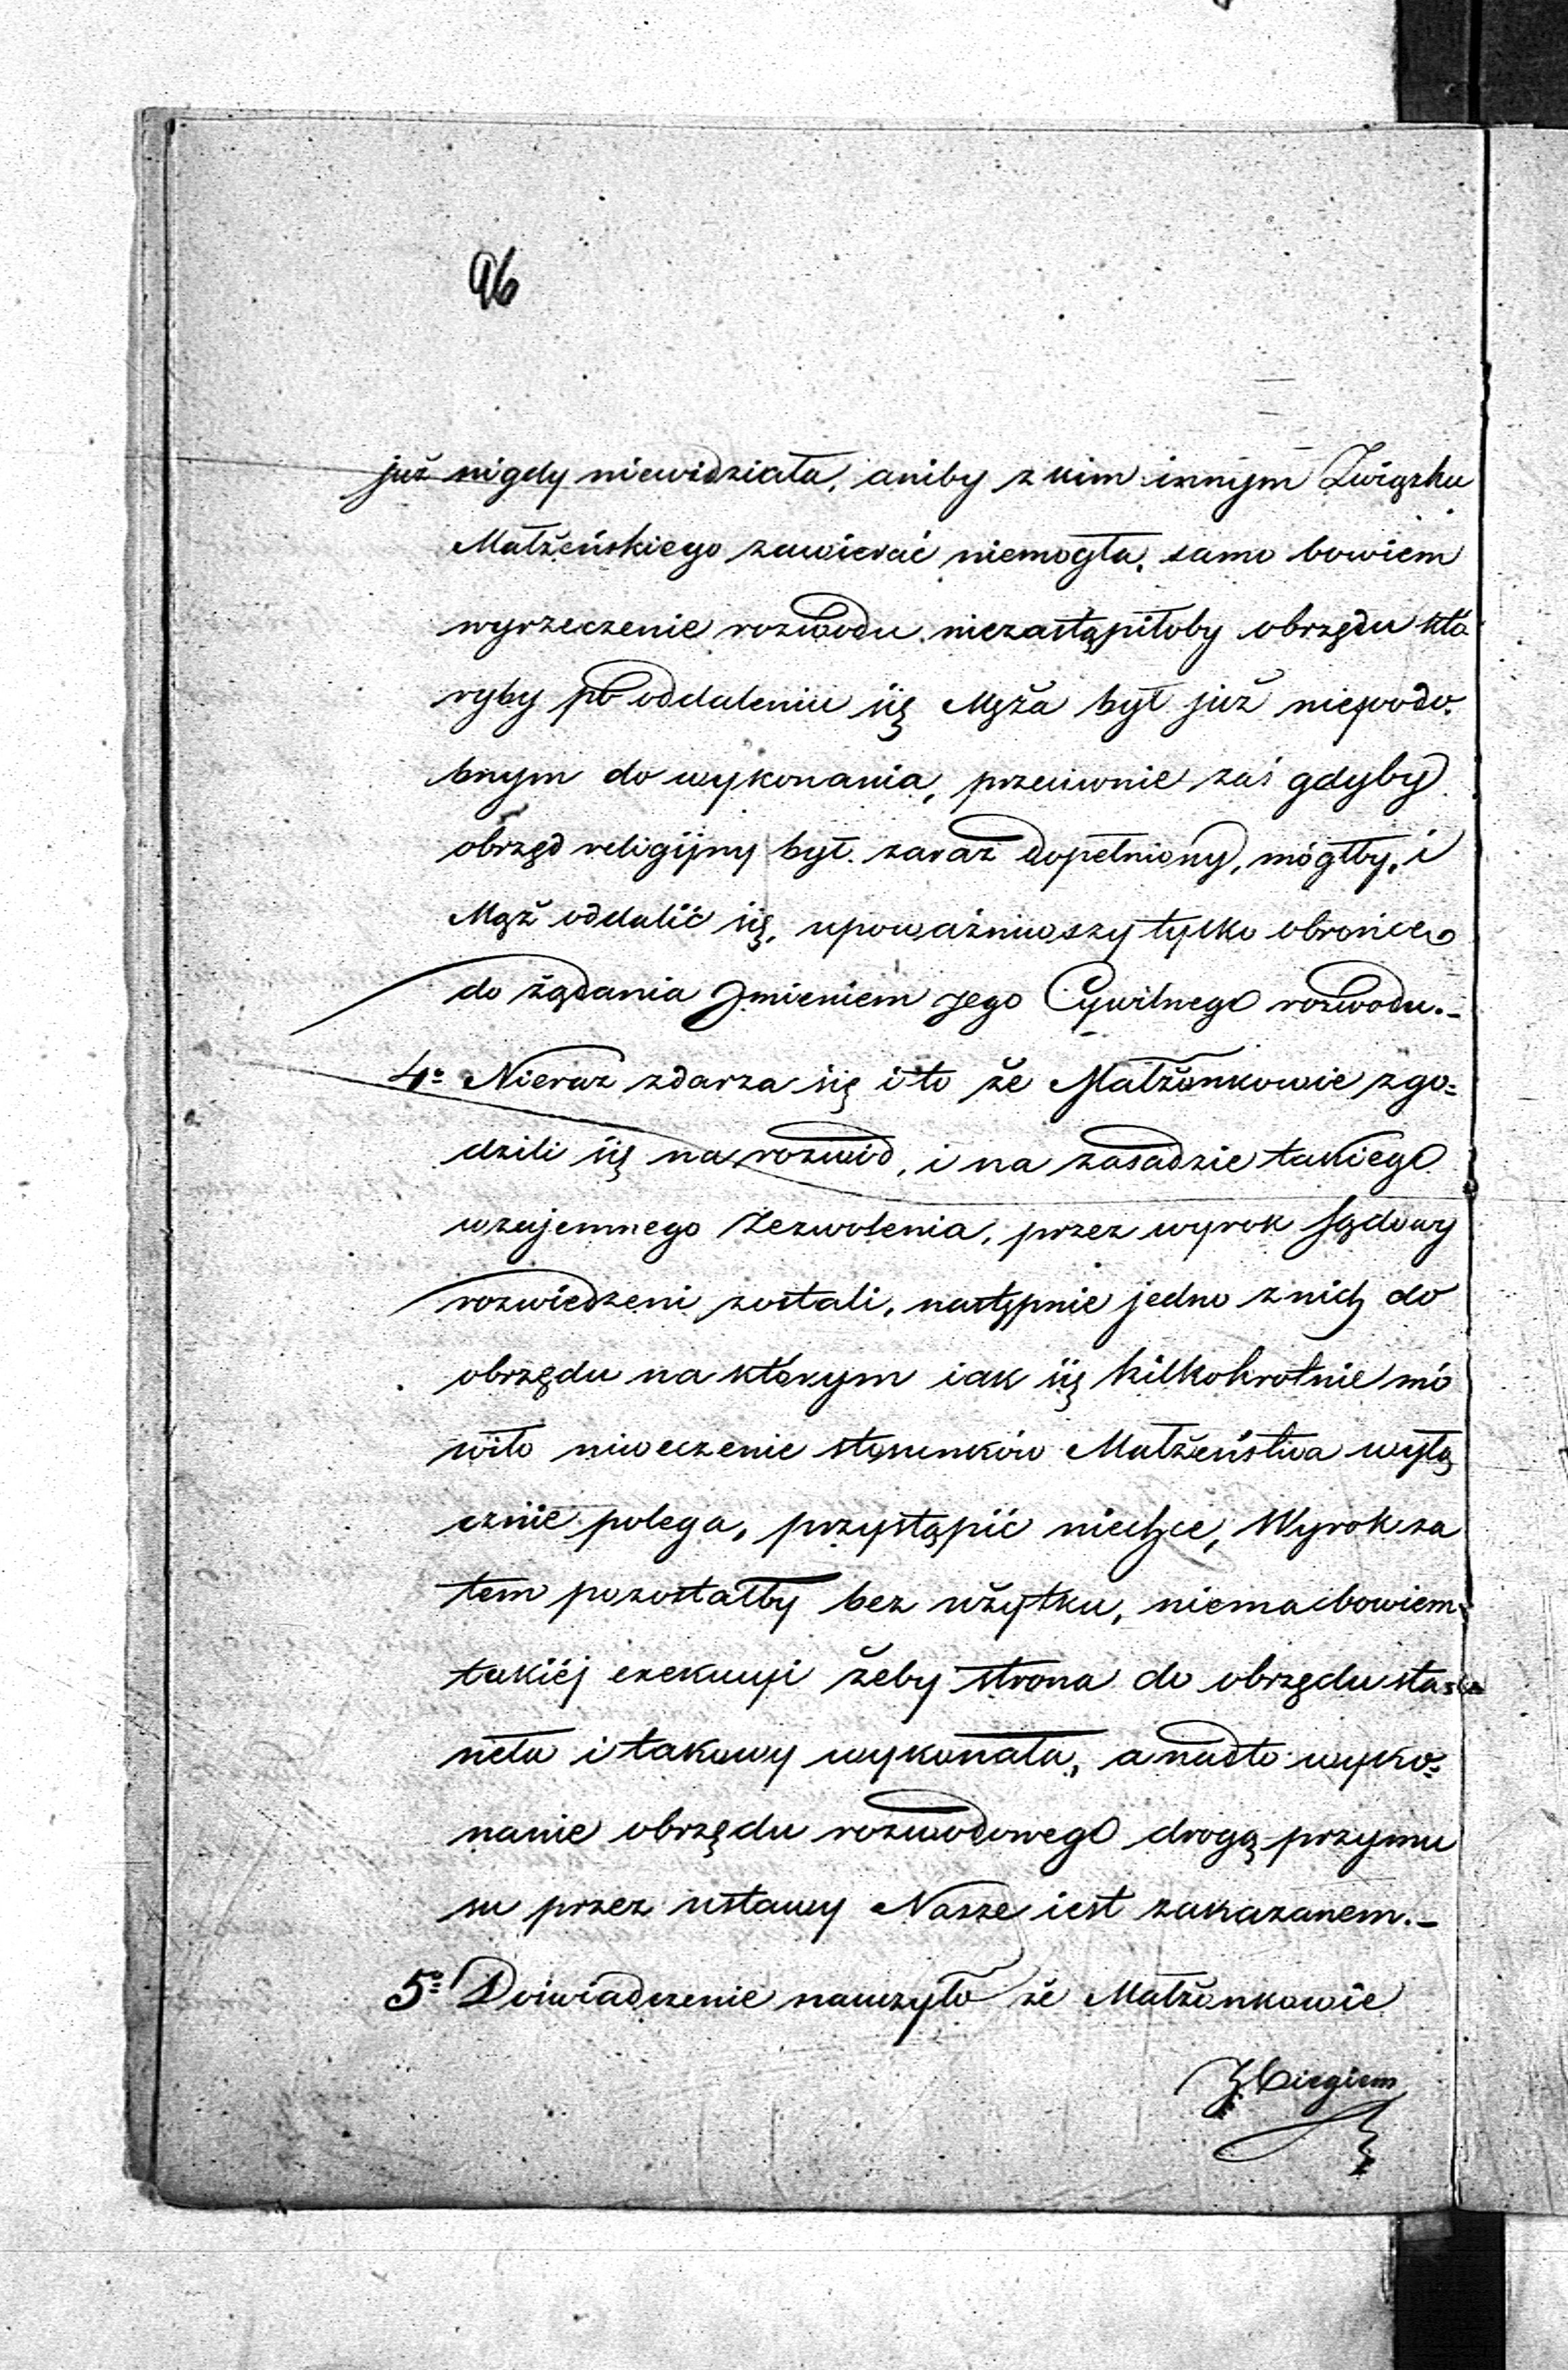 96
już nigdy niewidziała, aniby z kim innym Związku
Małżeńskiego zawierać niemogła, samo bowiem
wyrzeczenie rozwodu niezastąpiłoby obrzędu któ
ryby po oddaleniu się Męża był już niepodo-
bnym do wykonania, przeciwnie zaś gdyby
obrzęd religijny był zaraz dopełniony, mógłby i
Mąż oddalić się, upoważniwszy tylko obrońcę
do żądania Imieniem Jego Cywilnego rozwodu.-
4o Nieraz zdarza się i to że Małżonkowie zgo=
dzili się na rozwód, i na zasadzie takiego
wzajemnego zezwolenia, przez wyrok Sądowy
rozwiedzeni zostali, następnie jedno z nich do
obrzędu na którym iak się kilkokrotnie mó
wiło niweczenie stosunków Małżeństwa wyłą
cznie polega, przystąpić niechce, Wyrok za
tem pozostałby bez użytku, niema bowiem
takiéj exekucyi żeby strona do obrzędu sta=
nęła i takowy wykonała, a nadto wyko=
nanie obrzędu rozwodowego drogą przymu
su przez ustawy Nasze iest zakazanem.-
5o Doświadczenie nauczyło że Małżonkowie
Z biegiem